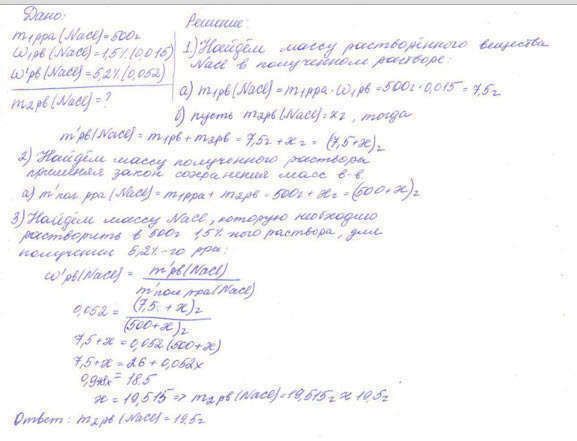 Дано:
m₁ рра(NaCl)=500г
ω₁рв(NaCl)=1,5%(0,015)
ω'рв(NaCl)=5,2%(0,052)
m₂рв(NaCl)=?
Решение:
1) Найдём массу растворённого вещества
NaCl в полученном растворе:
а) m₁рв(NaCl)=m₁рра·ω₁рв=500г·0,015=7,5г
б) пусть m₂рв(NaCl)=xг, тогда
m'рв(NaCl)=m₁рв+m₂рв=7,5г+xг=(7,5+x)г
2) Найдём массу полученного раствора
применяя закон сохранения масс в-в
а) m'пол рра(NaCl)=m₁рра+m₂рв=500г+xг=(500+x)г
3) Найдём массу NaCl, которую необходимо
растворить в 500г 1,5%-ного раствора, для
получения 5,2%-го рра:
ω'рв(NaCl)= m'рв(NaCl)
m'пол рра(NaCl)
0,052= (7,5+x)г
(500+x)г
7,5+x=0,052(500+x)
7,5+x=26+0,052x
0,948x=18,5
x=19,515 ⇒ m₂рв(NaCl)=19,515г≈19,5г
Ответ: m₂рв(NaCl)=19,5г